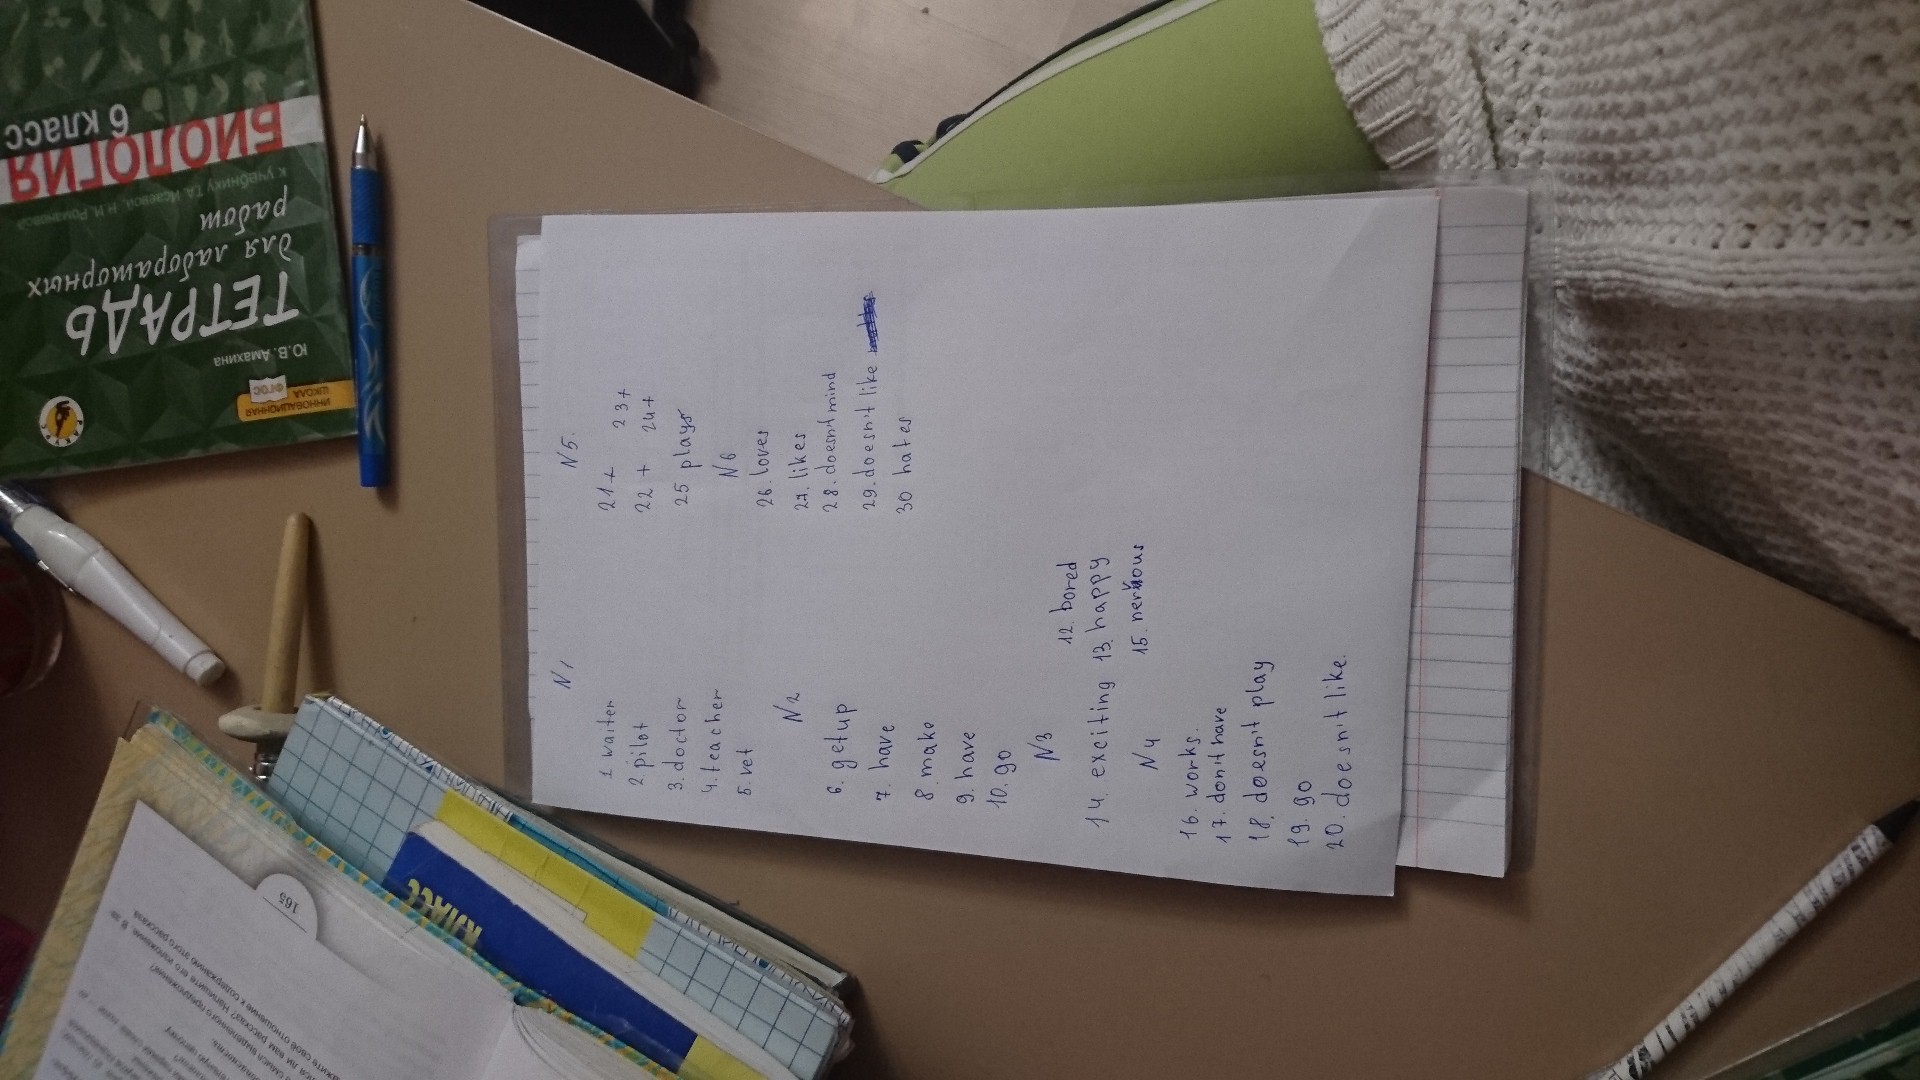 N1
1 waiter
2 pilot
3. doctor
4. teacher
5. vet
N2
6. get up
7. have
8. make
9. have
10. go
N3
12. bored
14. exciting 13. happy
15. nervous
N4
16. works.
17. don't have
18. doesn't play
19. go
20. doesn't like.
N5.
21+ 23+
22+ 24+
25 plays
N6
26. loves
27. likes
28. doesn't mind
29. doesn't like
30 hates
ИННОВАЦИОННАЯ
ШКОЛА
ФГОС
Ю.В. Амахина
ТЕТРАДЬ
для лабораторных
работ
к учебнику Т.А. Исаевой, Н.И. Романовой
БИОЛОГИЯ
6 класс
КЛАСС
165